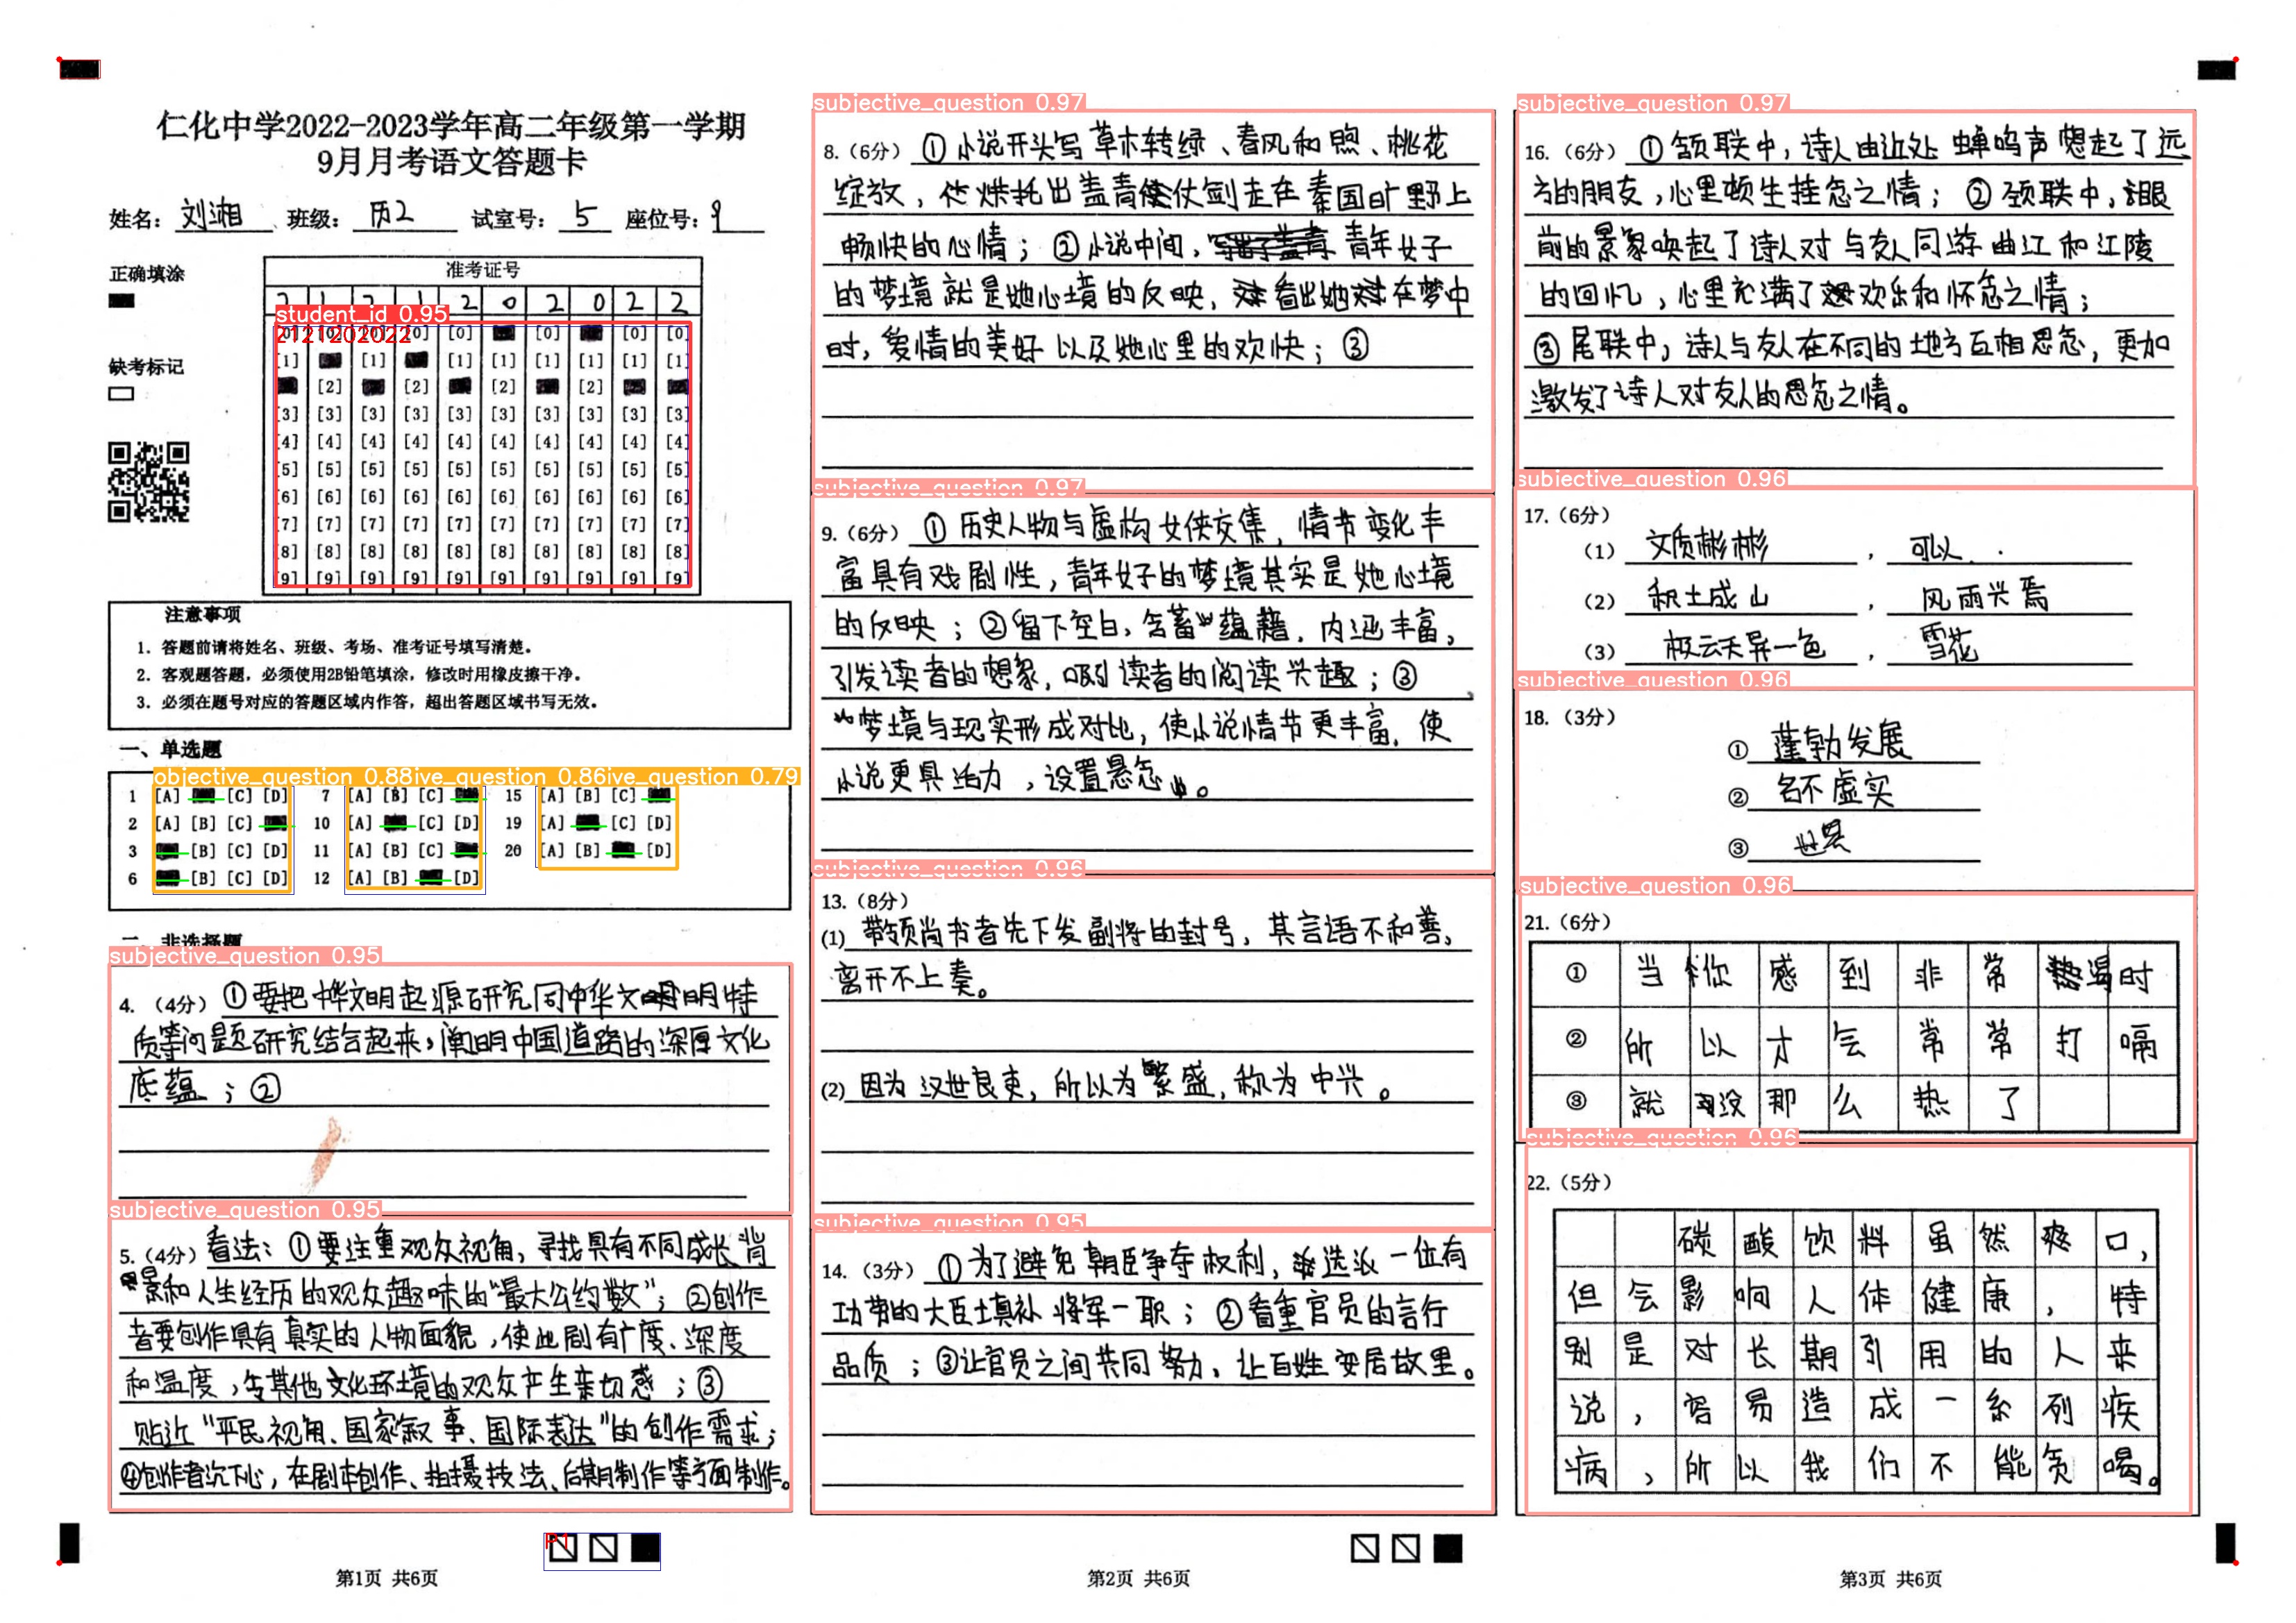 仁化中学2022-2023学年高二年级第一学期
9月月考语文答题卡
姓名: 刘湘 班级: 历2 试室号: 5 座位号: 9
正确填涂
缺考标记
准考证号
2 1 2 1 2 0 2 0 2 2
student_id 0.95
2121202022
[0] [0] [0] [0] [0] [0] [0] [0]
[1] [1] [1] [1] [1] [1] [1] [1]
[2] [2] [2] [2]
[3] [3] [3] [3] [3] [3] [3] [3] [3] [3]
[4] [4] [4] [4] [4] [4] [4] [4] [4] [4]
[5] [5] [5] [5] [5] [5] [5] [5] [5] [5]
[6] [6] [6] [6] [6] [6] [6] [6] [6] [6]
[7] [7] [7] [7] [7] [7] [7] [7] [7] [7]
[8] [8] [8] [8] [8] [8] [8] [8] [8] [8]
[9] [9] [9] [9] [9] [9] [9] [9] [9] [9]
注意事项
1. 答题前请将姓名、班级、考场、准考证号填写清楚。
2. 客观题答题，必须使用2B铅笔填涂，修改时用橡皮擦干净。
3. 必须在题号对应的答题区域内作答，超出答题区域书写无效。
一、单选题
objective_question 0.88ive_question 0.86ive_question 0.79
1 [A] [C] [D] 7 [A] [B] [C] 15 [A] [B] [C]
2 [A] [B] [C] 10 [A] [C] [D] 19 [A] [C] [D]
3 [B] [C] [D] 11 [A] [B] [C] 20 [A] [B] [D]
6 [B] [C] [D] 12 [A] [B] [D]
二、非选择题
subjective_question 0.95
4. （4分）①要把中华文明起源研究同中华文明特
质等问题研究结合起来，阐明中国道路的深厚文化
底蕴；②
subjective_question 0.95
5.（4分）看法：①要注重观众视角，寻找具有不同成长背
景和人生经历的观众趣味的“最大公约数”；②创作
者要创作具有真实的人物面貌，使此剧有广度、深度
和温度，令其他文化环境的观众产生亲切感；③
贴近“平民视角、国家叙事、国际表达”的创作需求；
④创作者沉下心，在剧本创作、拍摄技法、后期制作等方面制作。
P1
第1页 共6页
subjective_question 0.97
8.（6分）①小说开头写草木转绿、春风和煦、桃花
绽放，烘托出盖青使仗剑走在秦国旷野上
畅快的心情；②小说中间，青年女子
的梦境就是她心境的反映，看出她在梦中
时，爱情的美好以及她心里的欢快；③
subjective_question 0.97
9.（6分）①历史人物与虚构女侠交集，情节变化丰
富具有戏剧性，青年女子的梦境其实是她心境
的反映；②留下空白，含蓄蕴藉，内涵丰富，
引发读者的想象，吸引读者的阅读兴趣；③
梦境与现实形成对比，使小说情节更丰富，使
小说更具活力，设置悬念。
subjective_question 0.96
13.（8分）
(1) 带领尚书者先下发副将的封号，其言语不和善，
离开不上奏。
(2) 因为汉世良吏，所以为繁盛，称为中兴。
subjective_question 0.95
14. （3分）①为了避免朝臣争夺权利，选派一位有
功劳的大臣填补将军一职；②看重官员的言行
品质；③让官员之间共同努力，让百姓安居故里。
第2页 共6页
subjective_question 0.97
16. （6分）①颔联中，诗人由近处蝉鸣声想起了远
方的朋友，心里顿生挂念之情；②颈联中，眼
前的景象唤起了诗人对与友人同游曲江和江陵
的回忆，心里充满了欢乐和怀念之情；
③尾联中，诗人与友人在不同的地方互相思念，更加
激发了诗人对友人的思念之情。
subjective_question 0.96
17.（6分）
（1） 文质彬彬 ， 可以
（2） 积土成山 ， 风雨兴焉
（3） 极云天异一色 ， 雪花
subjective_question 0.96
18. （3分）
① 蓬勃发展
② 名不虚实
③ 世界
subjective_question 0.96
21.（6分）
① 当你感到非常渴时
② 所以才会常常打嗝
③ 就没那么热了
subjective_question 0.96
22.（5分）
碳酸饮料虽然爽口，
但会影响人体健康，特
别是对长期引用的人来
说，容易造成一系列疾
病，所以我们不能贪喝。
第3页 共6页